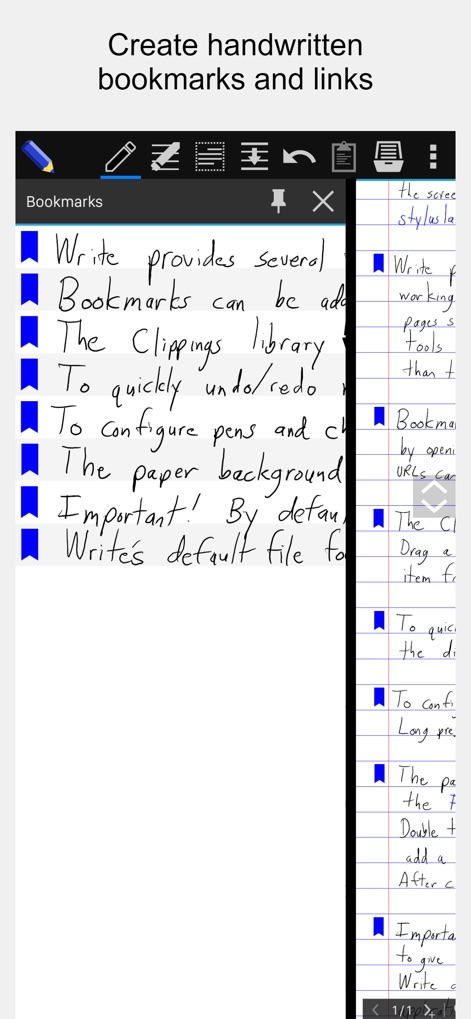 Create handwritten
bookmarks and links
Bookmarks
Write provides several
Bookmarks can be add
The Clippings library
To quickly undo/redo
To configure pens and ch
The paper background
Important! By defau
Write's default file fo
the scree
stylusla
Write p
working
pages s
tools
than t
Bookma
by openi
URLs can
The Cl
Drag a
item fr
To quic
the di
To confi
Long pre
The pa
the
Double t
add a
After c
Importa
to give
Write
1/1